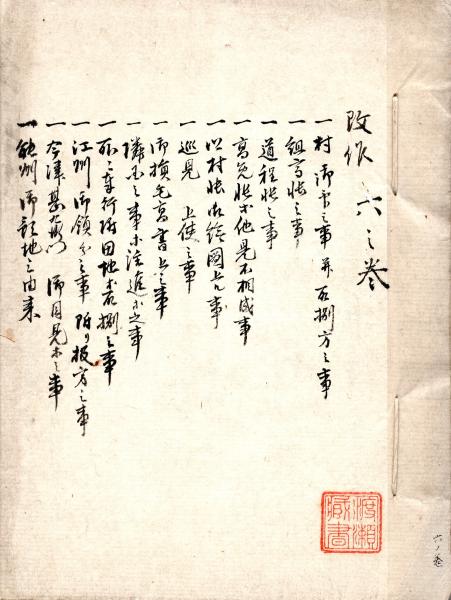 改作 六之巻
一 村御印之事 并石捌方之事
一 組高帳之事
一 道程帳之事
一 高免帳等他見不相成事
一 以村帳御絵図上ル事
一 巡見上使之事
一 御損毛高書上之事
一 隣国之事等注進等之事
一 所之奉行 田地等石捌之事
一 江州御領分之事 附り扱方之事
一 今濱某右衛門 御目見等之事
一 能州御預地之由来
渡瀬
蔵書
六ノ巻